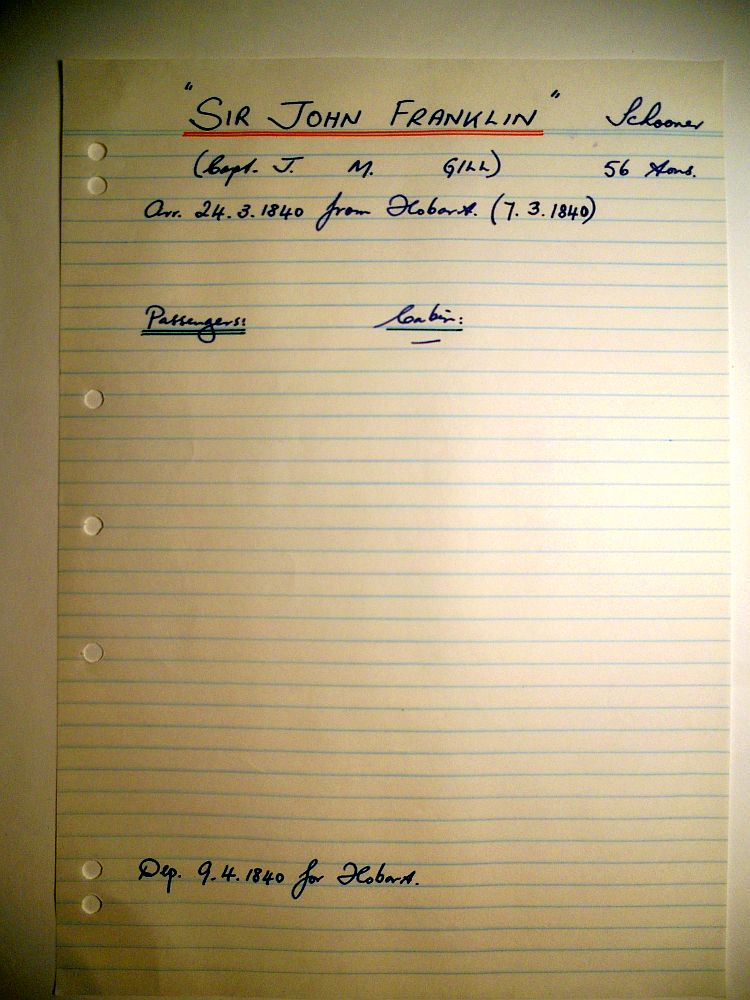 "SIR JOHN FRANKLIN" Schooner
(Capt. J. M. GILL) 56 tons.
Arr. 24.3.1840 from Hobart. (7.3.1840)
Passengers: Cabin:
—
Dep. 9.4.1840 for Hobart.